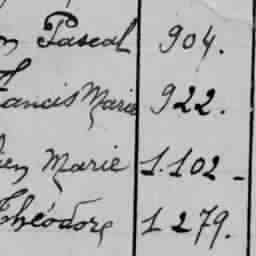 Pascal 904.
Francis Marie 922.
Marie 1.102 -
Théodore 1279.